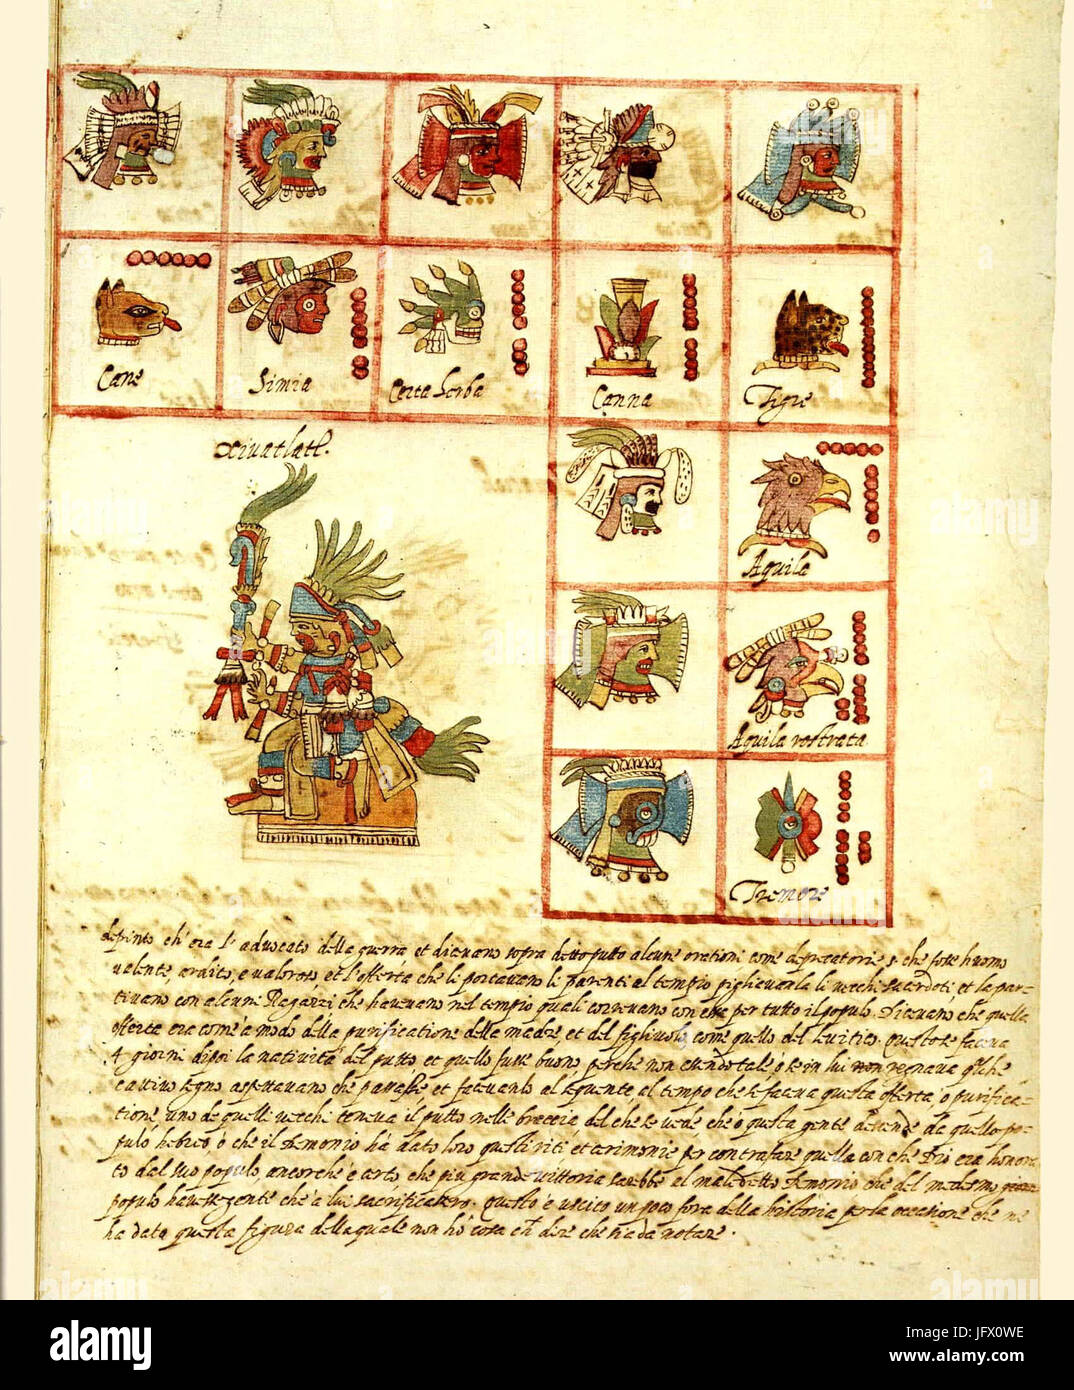 Cane
Simia
Certa herba
Canna
Tigre
Xivatlatl.
Aquila
Aquila rostrata
Tremore
depinto ch'era l'advocato della guerra et dicevano sopra detto putto alcune orationi come deprecatorie che fosse huomo
valente ardito, e valoroso, et l'offerta che li portavano li parenti al tempio pigliavanla li vecchi sacerdoti, et la par-
tivano con alcuni Ragazzi che havevano nel tempio quali correvano con essa per tutto il popolo. Dicevano che quella
offerta era come a modo della purificatione della madre, et del figliuolo, come quello del levitico. Questo se faceva
4 giorni dipoi la natività del putto et quello fusse buono, perche non essendo tale o se in lui non regnava qlche
cattivo segno aspettavano che passasse et facevanlo al seguente, al tempo che se faceva questa offerta, o purifica-
tione, uno de quelli vecchi teneva il putto nelle braccia del che se vede che o questa gente descende da quello po-
pulo hebreo, o che il Demonio ha dato loro questi riti et cerimonie per contrafare quella con che Dio era honora-
to dal suo populo, ancorche è certo che più grande vittoria sarebbe al maledetto Demonio che del medesmo
populo havesse gente che a lui sacrificassero. questo è uscito un poco fora della historia per la occasione che me
ha data questa figura della quale non ho cosa ch dire che sia da notare.
alamy
JFX0WE
www.alamy.com